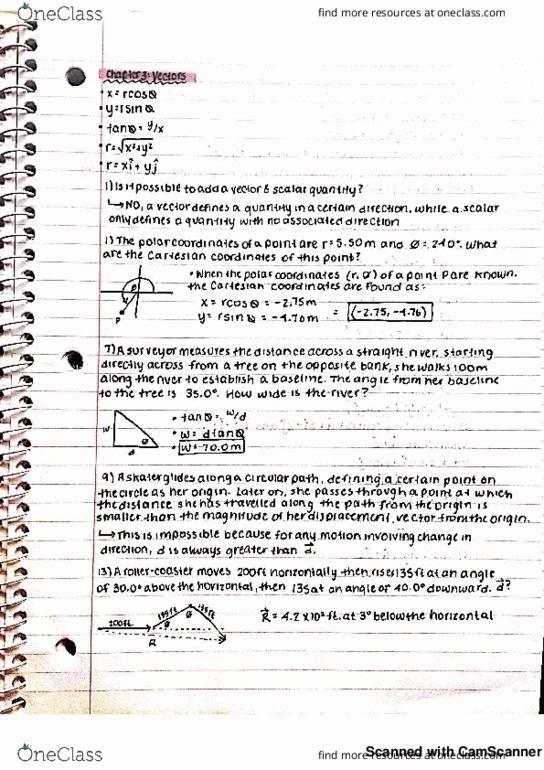 OneClass
find more resources at oneclass.com
Chapter 3: Vectors
• x = rcosθ
• y = rsinθ
• tanθ = y/x
• r = √x²+y²
• r = xî + yĵ
1) Is it possible to add a vector & scalar quantity?
↳ NO, a vector defines a quantity in a certain direction, while a scalar
only defines a quantity with no associated direction
1) The polar coordinates of a point are r = 5.50m and Ø = 240°. What
are the Cartesian coordinates of this point?
• When the polar coordinates (r, θ) of a point P are known,
the Cartesian coordinates are found as:
x = rcosθ = -2.75m
y = rsinθ = -4.76m
= (-2.75, -4.76)
r
θ
P
7) A surveyor measures the distance across a straight river, starting
directly across from a tree on the opposite bank, she walks 100m
along the river to establish a baseline. The angle from her baseline
to the tree is 35.0°. How wide is the river?
w
θ
d
• tanθ = w/d
• w = dtanθ
• w = 70.0m
9) A skater glides along a circular path, defining a certain point on
the circle as her origin. Later on, she passes through a point at which
the distance she has travelled along the path from the origin is
smaller than the magnitude of her displacement, vector from the origin.
↳ This is impossible because for any motion involving change in
direction, d is always greater than d⃗.
13) A roller-coaster moves 200ft horizontally then rises 135ft at an angle
of 30.0° above the horizontal, then 135 at an angle of 40.0° downward. d⃗?
200ft
135ft
135ft
θ
R
R⃗ = 4.2 x 10² ft. at 3° below the horizontal
OneClass
find more resources at oneclass.com
Scanned with CamScanner